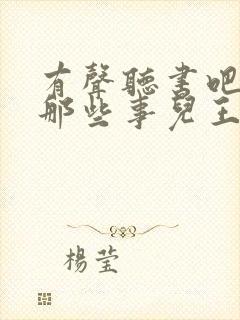 有聲聽書吧
那些事兒王
楊莹